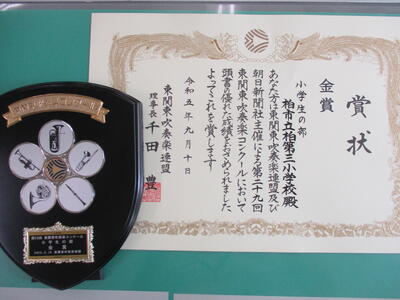 賞状
金賞
小学生の部
柏市立柏第三小学校殿
あなた方は東関東吹奏楽連盟及び
朝日新聞社主催による第二十九回
東関東吹奏楽コンクールにおいて
頭書の優れた成績をおさめられました
よってこれを賞します
令和五年九月十日
東関東吹奏楽連盟
理事長 千田 豊
小学生の部
金賞